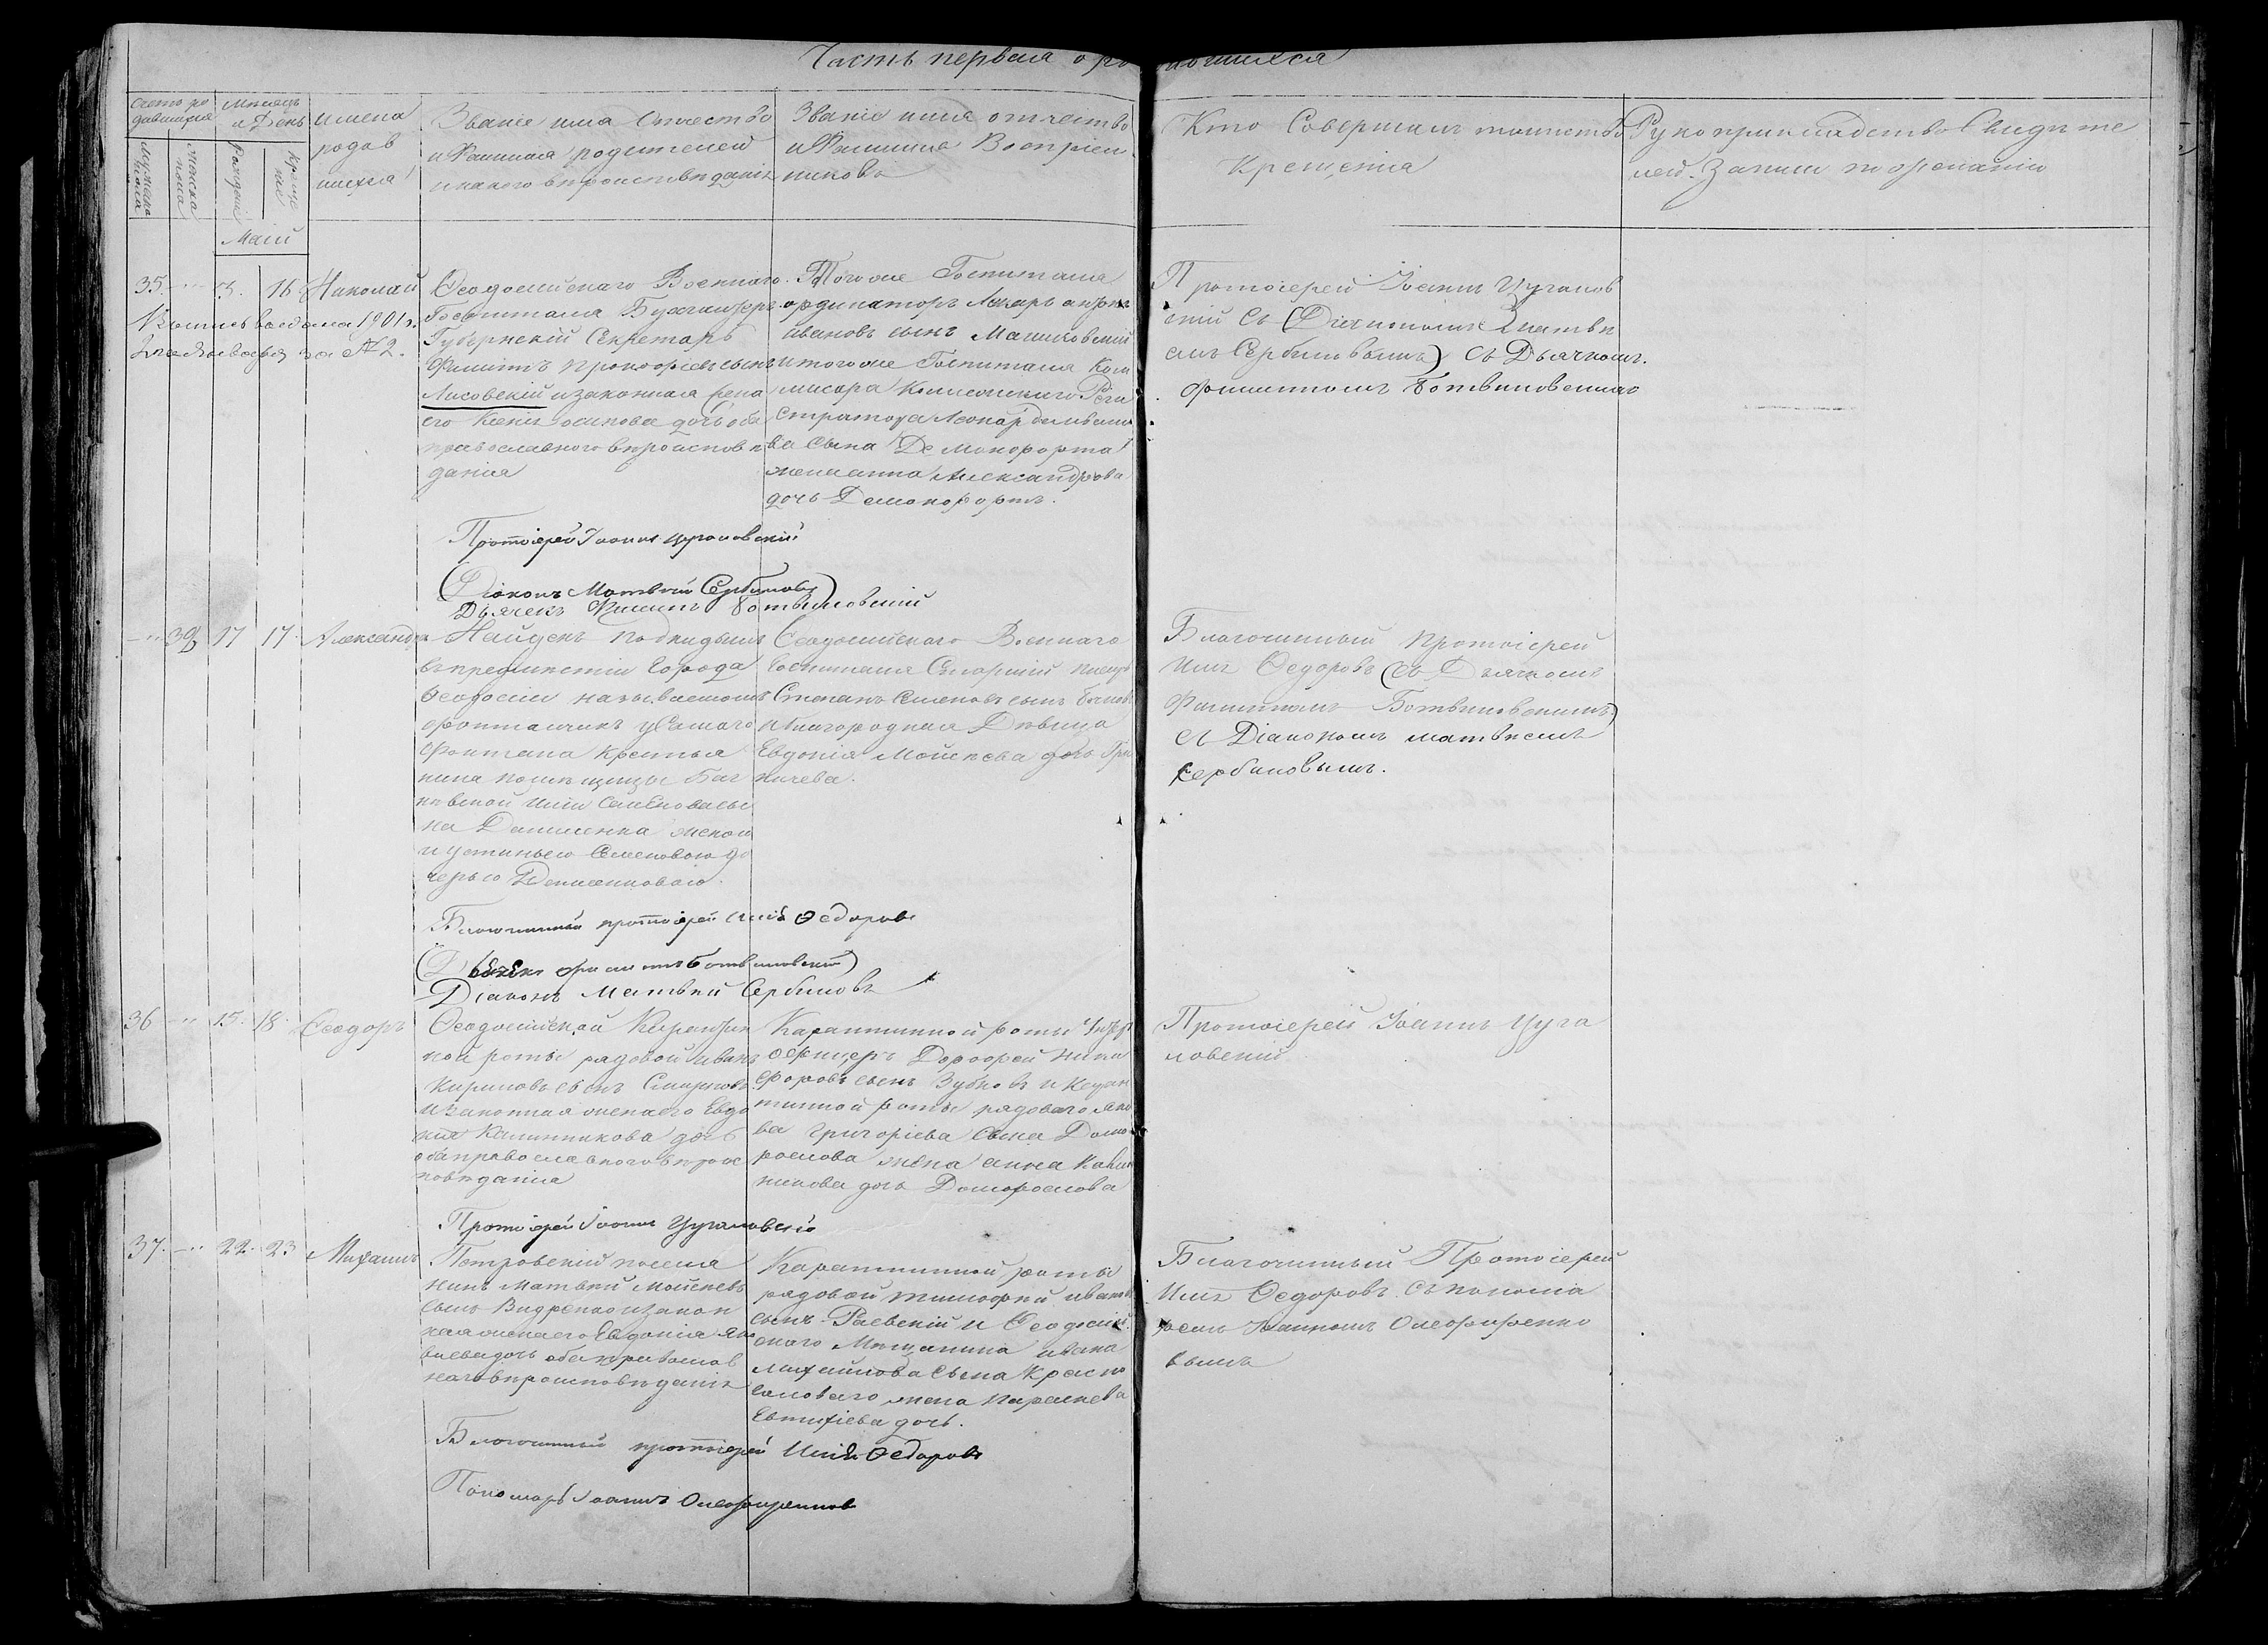 Часть первая о родившихся
Счетъ ро
дившихся
Мужеска
пола
Женска
пола
Месяцъ
и День
Рождения
Креще
ния
Имена
родив
шихся
Званіе имя Отчество
и Фамилия родителей
и какого вероисповеданія
Званіе имя отчество
и Фамилия Воспріем
никовъ
Кто Совершалъ таинство
Крещенія
Рукоприкладство Свидете
лей Записи по желанію
Маій
35 3 16 Николай
Выпись выдана 1901 г.
января за № 2.
Феодосійскаго Военнаго
Госпиталя Бухгалтеръ
Губернскій Секретарь
Филиппъ Прокофьевъ сынъ
Лисовскій и законная жена
его Ксенія осипова дочь оба
православного вероисповѣ
данія
Того же Госпиталя
ординаторъ Лекарь
Ивановъ сынъ Машковскій
и того же Госпиталя Ком
мисара Коллежскаго Реги
стратора
ва сына Де Монфорта
жена анна Александрова
дочь Демонфортъ.
Протоіерей Іоаннъ Цугалов
скій съ (Діакономъ Матвѣ
емъ Сербиновымъ) съ Дьячкомъ
Филиппомъ Ботвиновскимъ
Протоіерей Іоаннъ Цугаловскій
(Діаконъ Матвѣй Сербиновъ)
Дьячекъ Филиппъ Ботвиновскій
36 17 17 Александра
Найденъ подкидышъ
въ предместіи Города
Феодосіи называемомъ
фонтанчикъ у самаго
Фонтана крестья
нина помѣщицы
Семенова сы
на Даниленка женою
Устиньею Семеновою до
черью Даниленковою.
Феодосійскаго Военнаго
Госпиталя Старшій писарь
Степанъ Семеновъ сынъ
и благородная Дѣвица
Евдокія Мойсѣева дочь Гри
ничева.
Благочинный протоіерей
Илія Федоровъ (съ Дьячкомъ
Филиппомъ Ботвиновскимъ)
съ Діакономъ Матвѣемъ
Сербиновымъ.
Благочинный протоіерей Илія Федоровъ
(Дьячекъ Филиппъ Ботвиновскій)
Діаконъ Матвѣй Сербиновъ
36 15 18 Феодоръ
Феодосійской Карантин
ной роты рядовой Иванъ
Кириловъ сынъ Смирновъ
и законная жена его Евдо
кия Калинникова дочь
оба православного вероис
поведанія
Карантинной роты Унтеръ
офицеръ Дорофей Ники
форовъ сынъ Зубковъ и Каран
тинной роты рядового Яко
ва Григоріева сына Домо
рослова жена анна Калин
никова дочь Доморослова
Протоіерей Іоаннъ Цуга
ловскій
Протоіерей Іоаннъ Цугаловскій
37 22 23 Михаилъ
Петровскій поселя
нинъ Матвѣй Мойсѣевъ
сынъ и закон
ная жена его Евдокія Яко
влева дочь оба православ
наго вероисповѣданія
Карантинной роты
рядовой тимофей Ивановъ
сынъ Раевскій и Феодосій
скаго Мѣщанина ивана
михайлова сына Красно
жена Параскева
Евтихіева дочь.
Благочинный Протоіерей
Илія Федоровъ съ понома
ремъ Іоанномъ
вымъ
Благочинный протоіерей Илія Федоровъ
Пономарь Іоаннъ